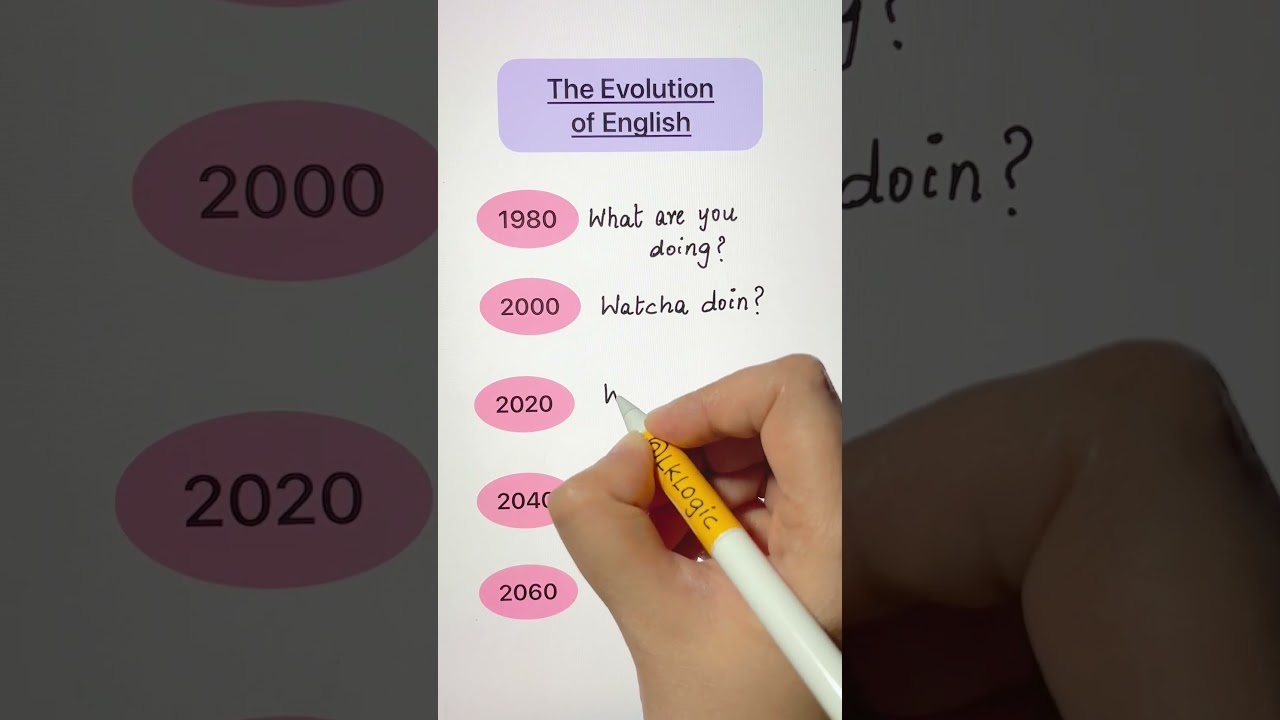 The Evolution
of English
1980 What are you
doing?
2000 Watcha doin?
2020 W
2040
2060
@LKLogic
2000
2020
doin?